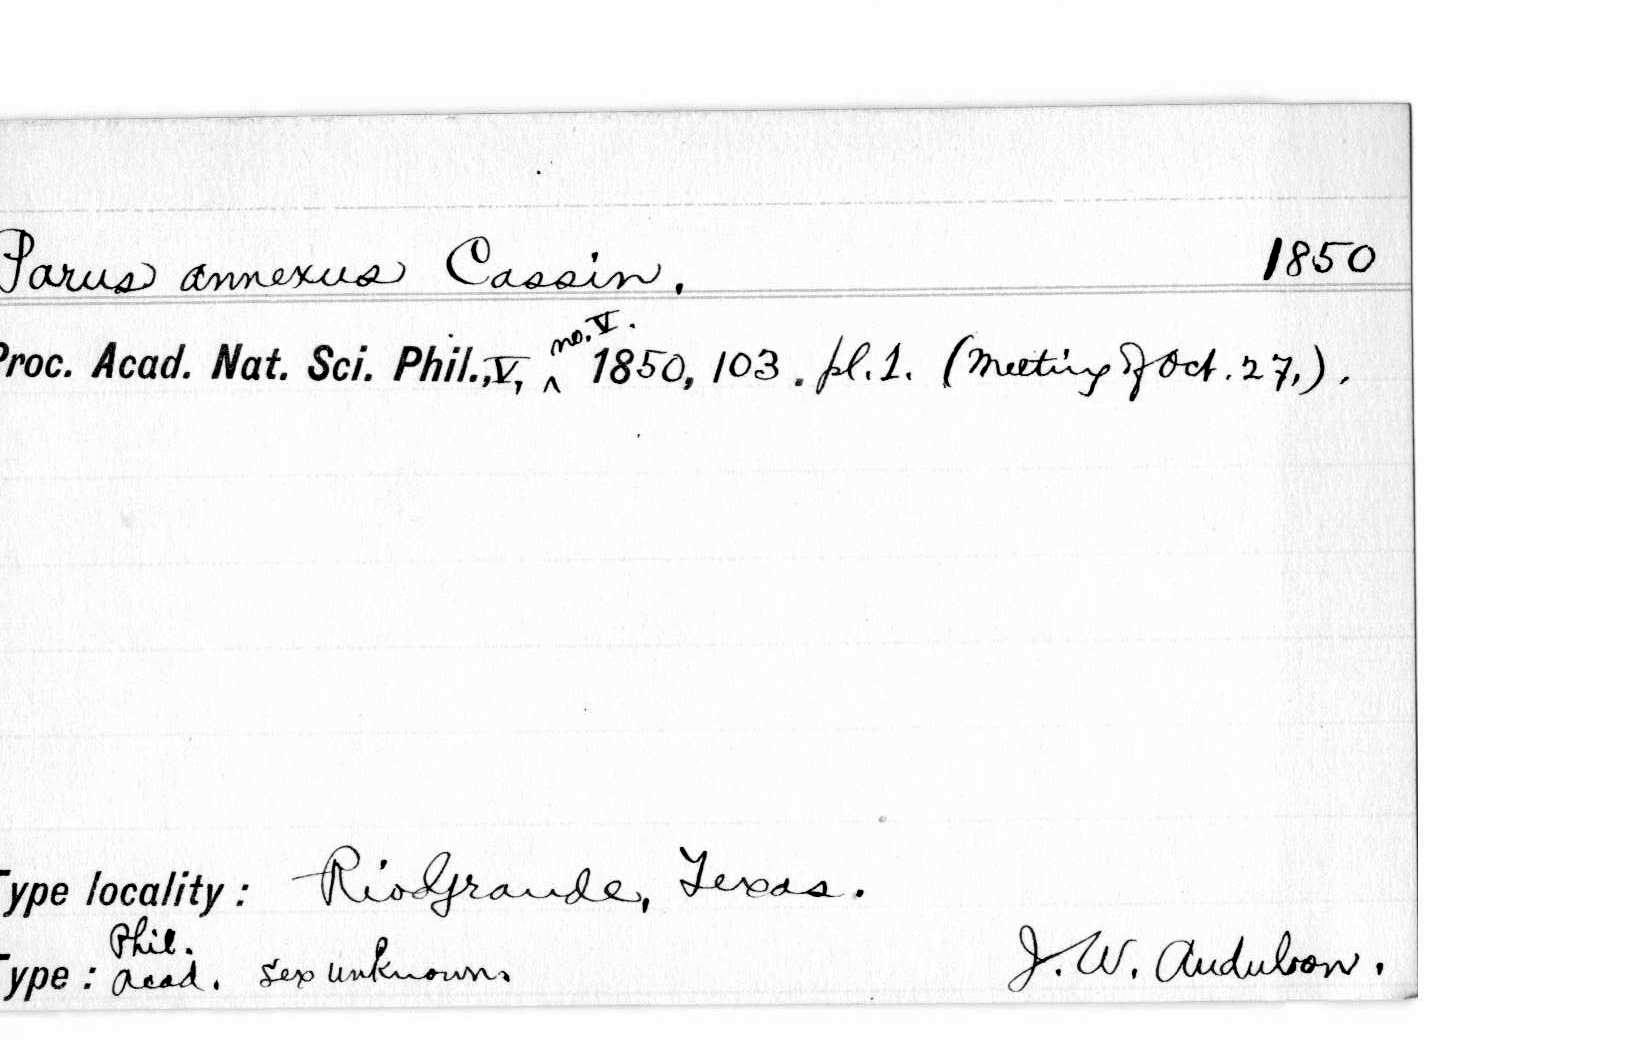 Parus annexus Cassin. 1850
Proc. Acad. Nat. Sci. Phil., V, ^ no. V. 1850, 103. pl. 1. (Meeting of Oct. 27,).
Type locality: Rio Grande, Texas.
Type: Phil. Acad. sex unknown. J. W. Audubon.